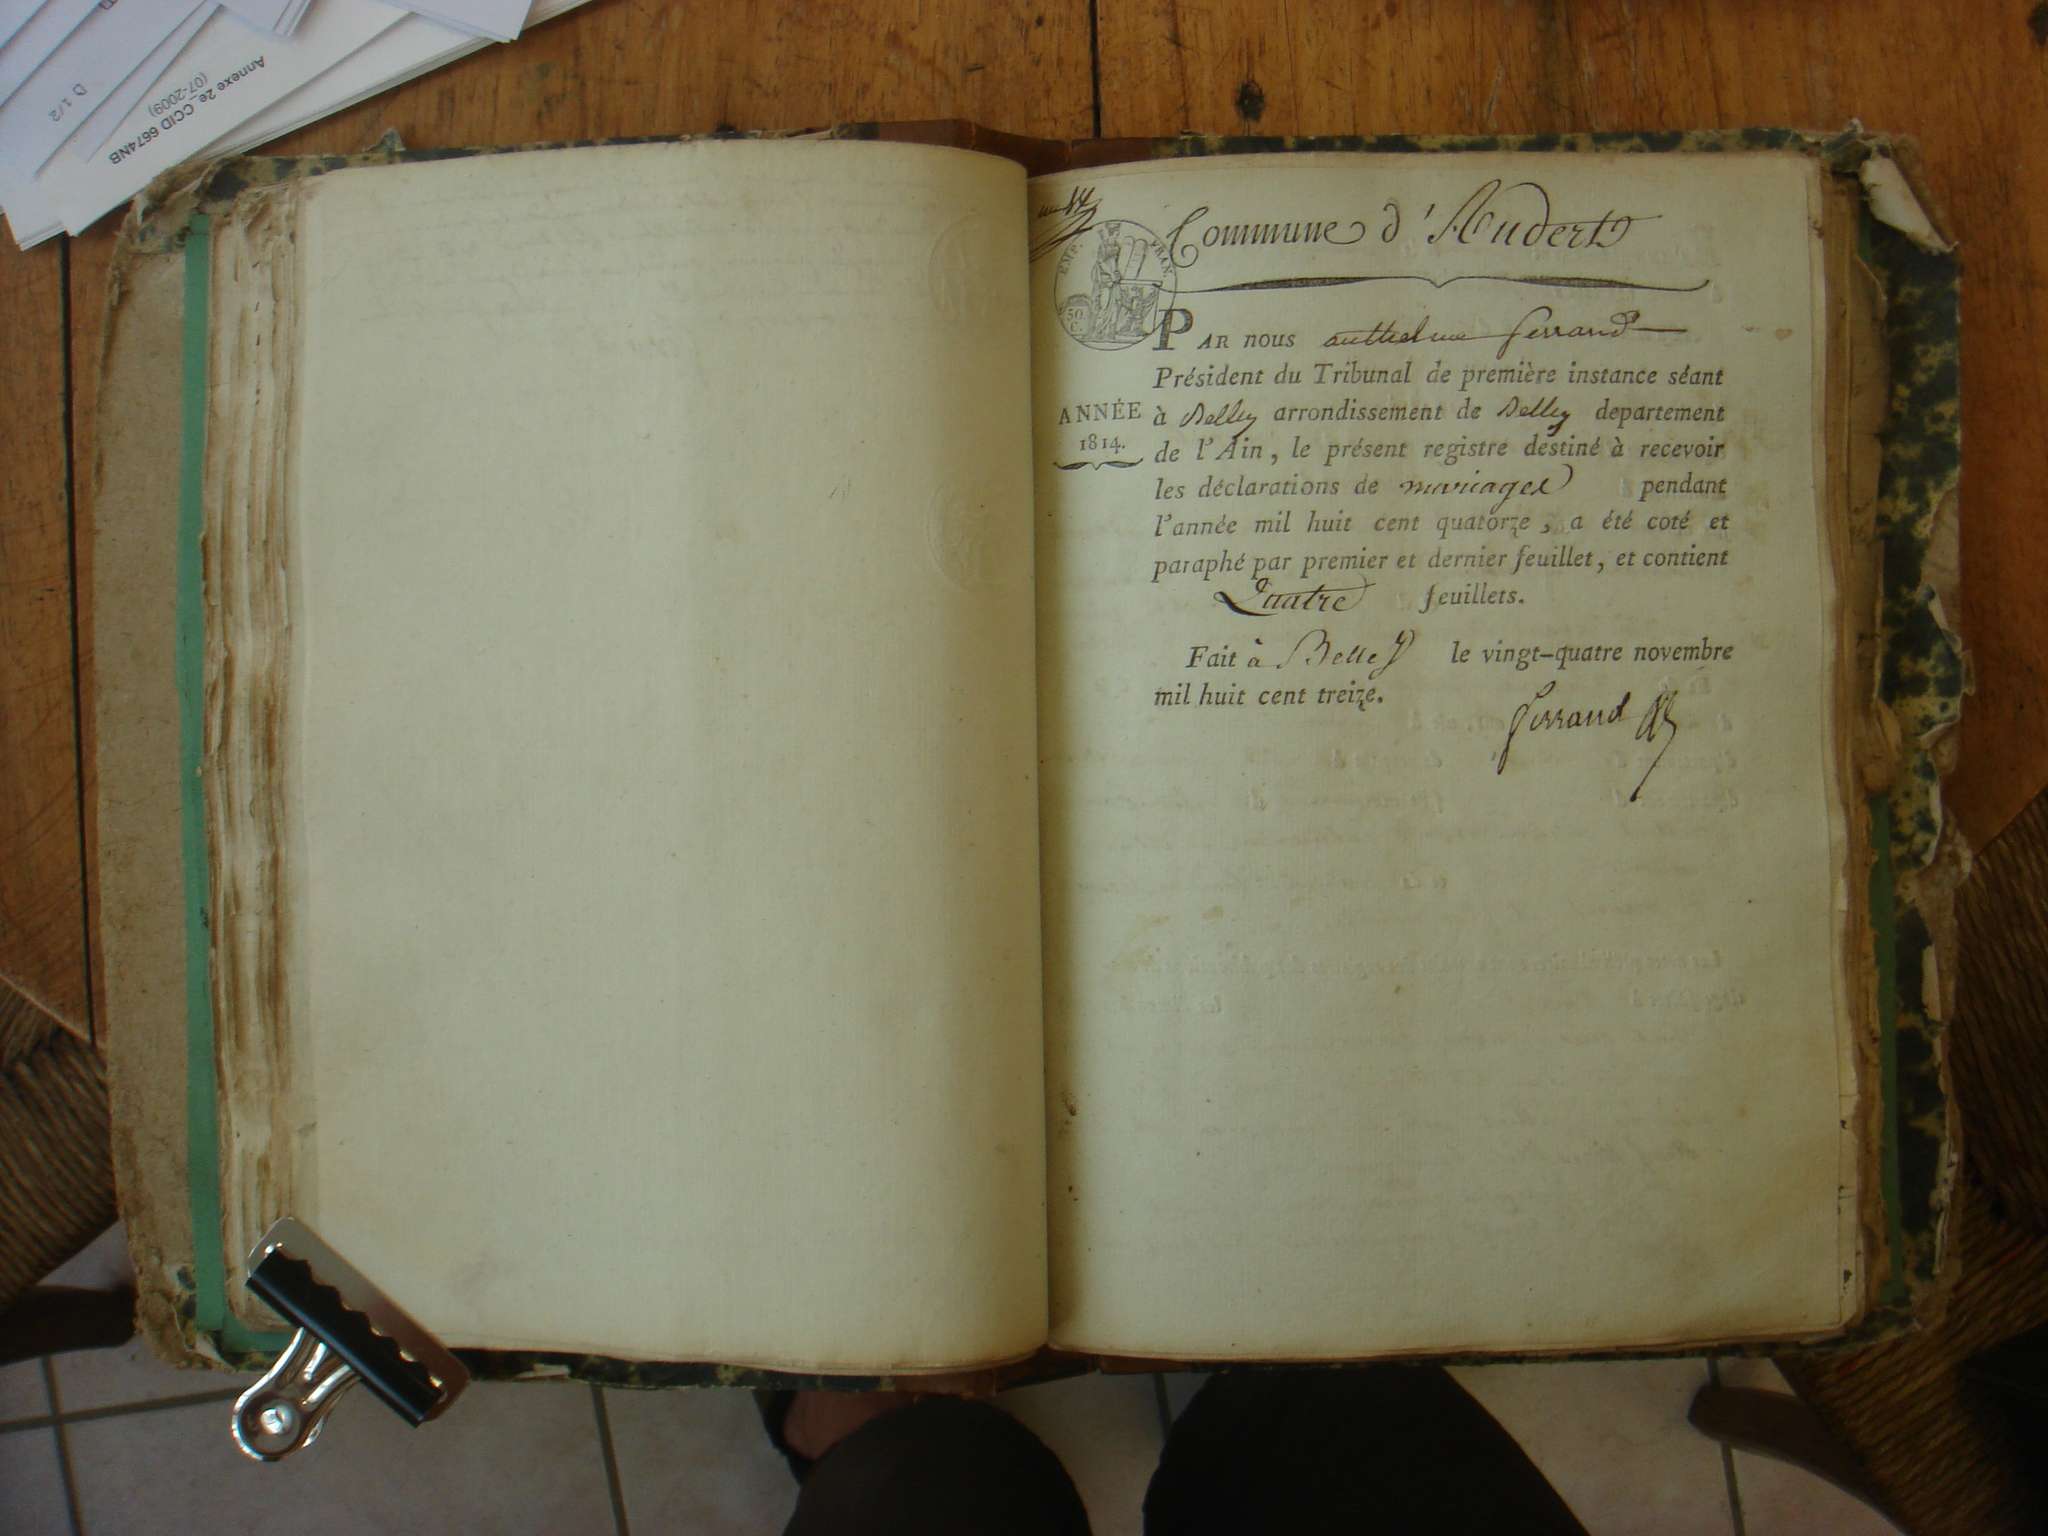 Annexe 2e_CCID 6674NB
(07-2009)
D 1/2
Commune d'Audert
EMP. FRAN.
50.
C.
PAR nous anthelme ferrand
Président du Tribunal de première instance séant
ANNÉE
1814.
à Belley arrondissement de Belley departement
de l'Ain, le présent registre destiné à recevoir
les déclarations de mariages pendant
l'année mil huit cent quatorze, a été coté et
paraphé par premier et dernier feuillet, et contient
Quatre feuillets.
Fait à Belley le vingt-quatre novembre
mil huit cent treize.
ferrand